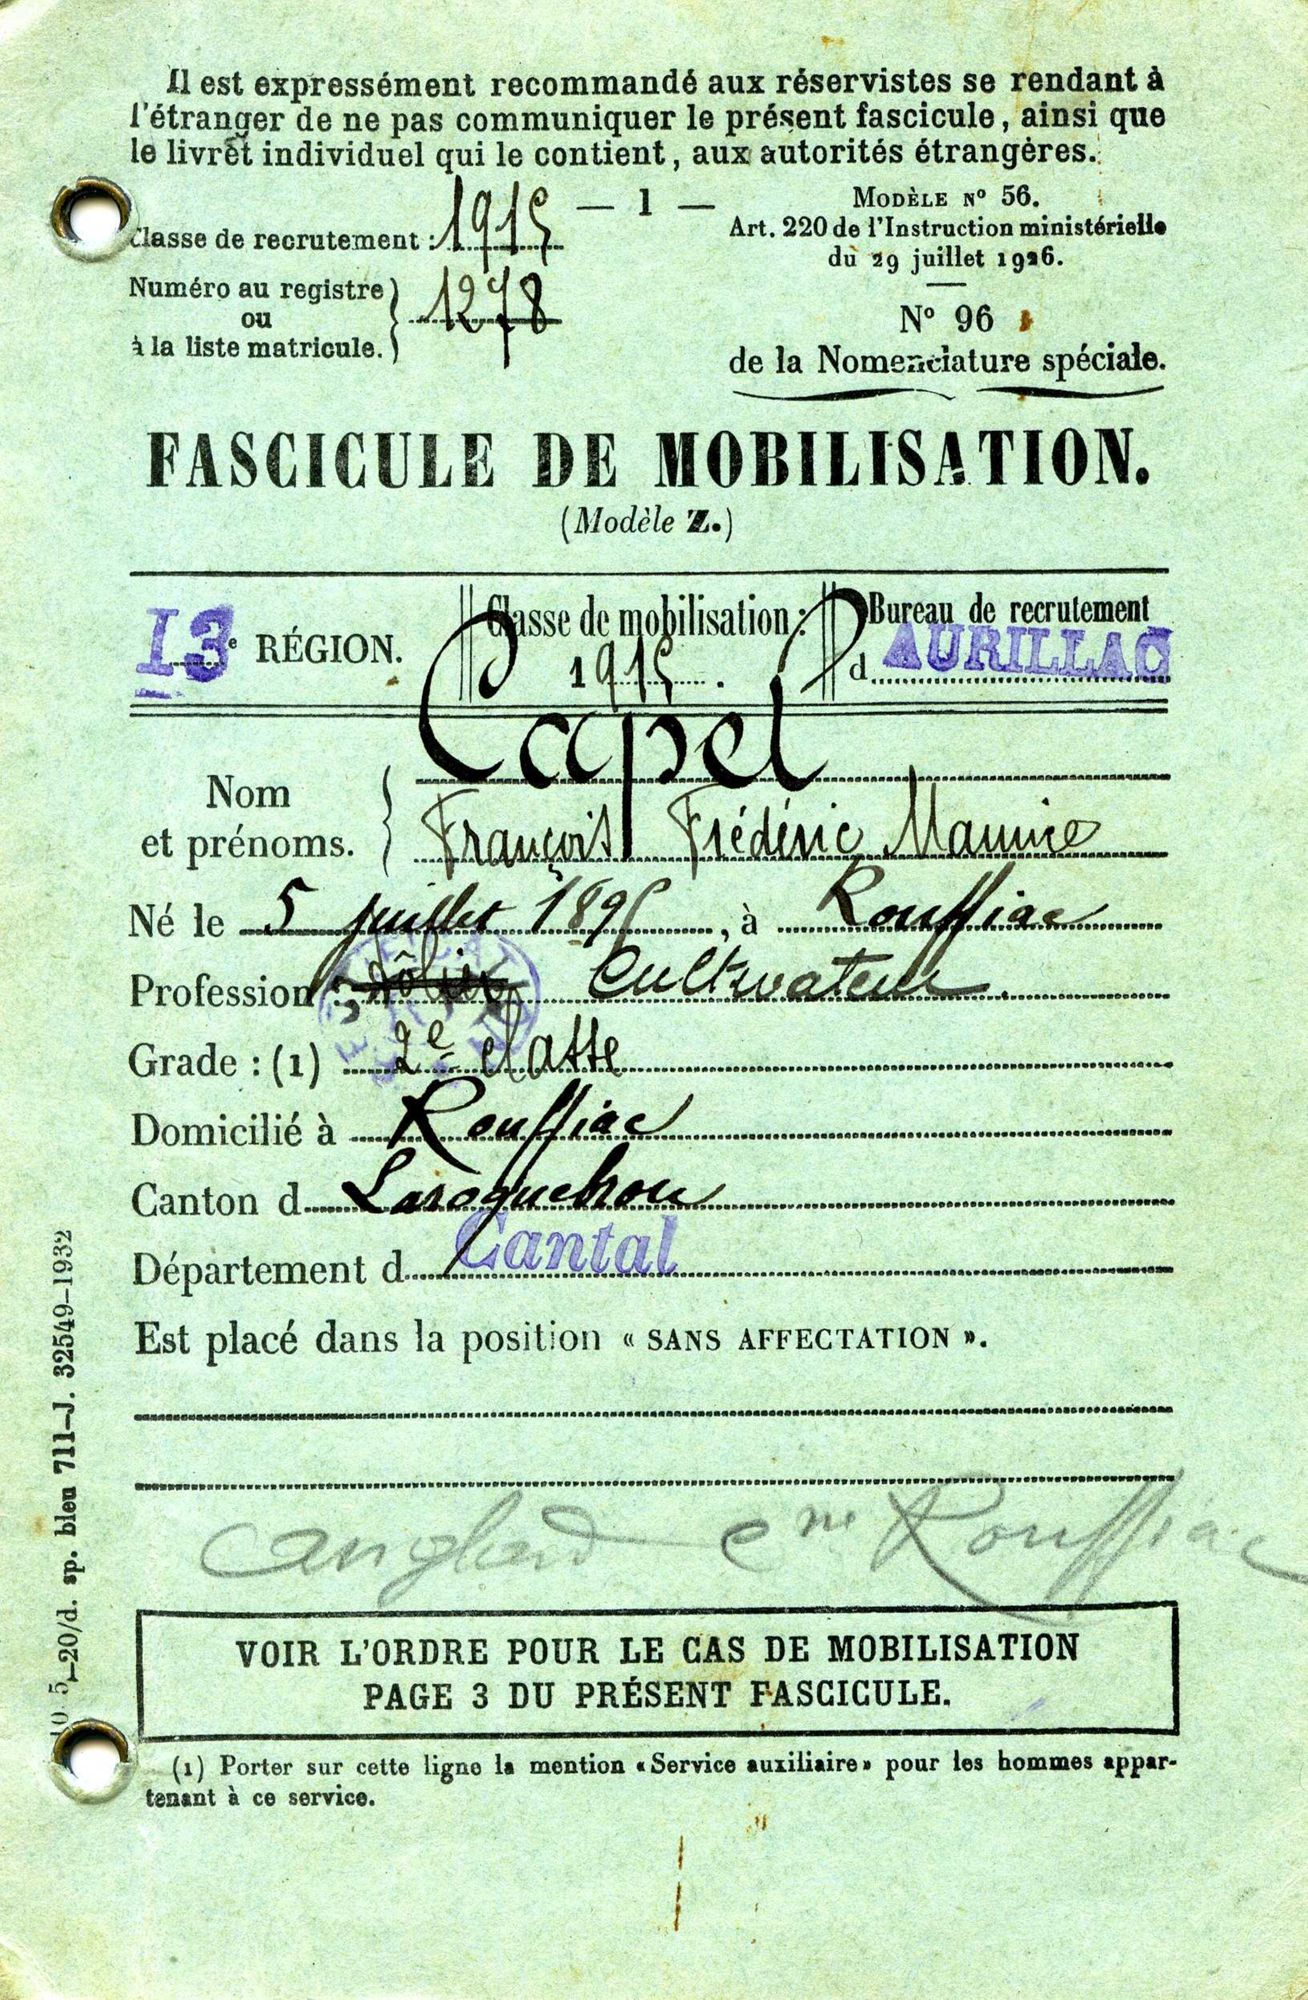 Il est expressément recommandé aux réservistes se rendant à
l'étranger de ne pas communiquer le présent fascicule, ainsi que
le livret individuel qui le contient, aux autorités étrangères.
— 1 —
Classe de recrutement : 1915
Numéro au registre
ou
à la liste matricule. } 1278
MODÈLE Nº 56.
Art. 220 de l'Instruction ministérielle
du 29 juillet 1926.
Nº 96
de la Nomenclature spéciale.
FASCICULE DE MOBILISATION.
(Modèle Z.)
13e RÉGION.
Classe de mobilisation :
1915.
Bureau de recrutement
d AURILLAC
Capel
Nom
et prénoms. } François Frédéric Maurice
Né le 5 juillet 1895, à Rouffiac
Profession : Cultivateur
Grade : (1) 2e classe
Domicilié à Rouffiac
Canton d Laroquebrou
Département d Cantal
Est placé dans la position « SANS AFFECTATION ».
Anglard cne Rouffiac
VOIR L'ORDRE POUR LE CAS DE MOBILISATION
PAGE 3 DU PRÉSENT FASCICULE.
(1) Porter sur cette ligne la mention « Service auxiliaire » pour les hommes appar-
tenant à ce service.
5-20/d. sp. bleu 711-J. 32549-1932